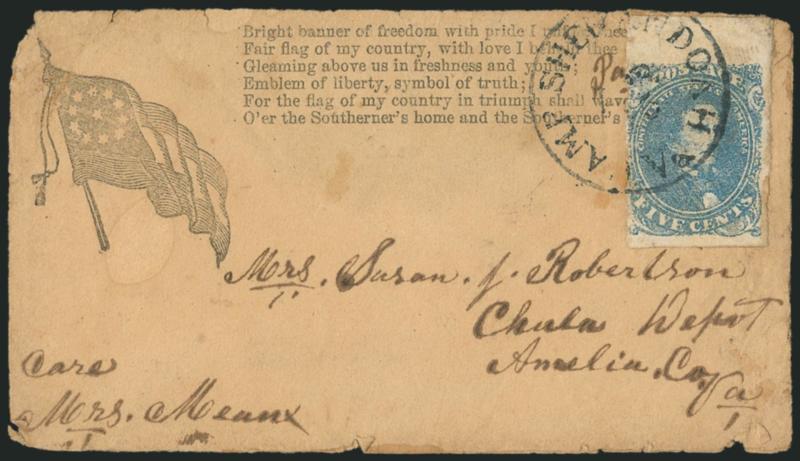 Bright banner of freedom with pride I thee
Fair flag of my country, with love I behold thee
Gleaming above us in freshness and youth;
Emblem of liberty, symbol of truth;
For the flag of my country in triumph shall wave
O'er the Southerner's home and the Southerner's
FIVE CENTS
Mrs. Susan. J. Robertson
Chula Depot
Amelia. Co,
Va
Care
Mrs. Meaux